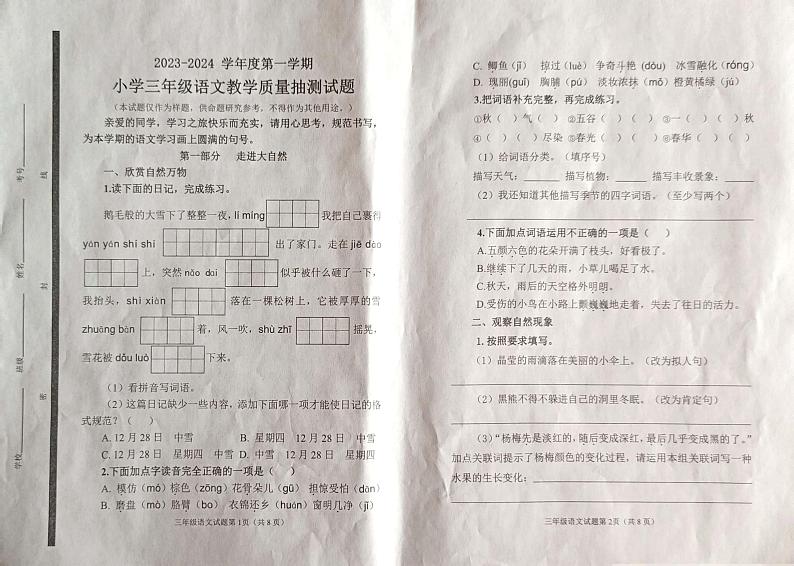 学校________ 班级________ 姓名________ 考号________
密 封 线
2023-2024 学年度第一学期
小学三年级语文教学质量抽测试题
（本试题仅作为样题，供命题研究参考，不得作为其他用途。）
亲爱的同学，学习之旅快乐而充实，请用心思考，规范书写，
为本学期的语文学习画上圆满的句号。
第一部分 走进大自然
一、欣赏自然万物
1.读下面的日记，完成练习。
鹅毛般的大雪下了整整一夜，lí míng 我把自己裹得
yán yán shí shí 出了家门。走在 jiē dào
上，突然 nǎo dai 似乎被什么砸了一下，
我抬头，shì xiàn 落在一棵松树上，它被厚厚的雪
zhuāng bàn 着，风一吹，shù zhī 摇晃，
雪花被 dǒu luò 下来。
（1）看拼音写词语。
（2）这篇日记缺少一些内容，添加下面哪一项才能使日记的格
式规范？（ ）
A. 12 月 28 日 中雪 B. 星期四 12 月 28 日 中雪
C. 12 月 28 日 星期四 中雪 D. 中雪 12 月 28 日 星期四
2.下面加点字读音完全正确的一项是（ ）
A. 模仿（mó）棕色（zōng）花骨朵儿（gū） 担惊受怕（dān）
B. 磨盘（mò）胳臂（bo） 衣锦还乡（huán）窗明几净（jī）
三年级语文试题第 1页（共 8 页）
C. 鲫鱼（jī） 掠过（luè） 争奇斗艳（dòu) 冰雪融化（róng）
D. 瑰丽(guī) 胸脯（pú） 淡妆浓抹（mǒ）橙黄橘绿（jú）
3.把词语补充完整，再完成练习。
①秋（ ）气（ ） ②五谷（ ）（ ） ③一（ ）（ ）秋
④（ ）（ ）尽染 ⑤春光（ ）（ ） ⑥春华（ ）（ ）
（1）给词语分类。（填序号）
描写天气：______ 描写植物：______ 描写丰收景象：______
（2）我还知道其他描写季节的四字词语。（至少写两个）
4.下面加点词语运用不正确的一项是（ ）
A.五颜六色的花朵开满了枝头，好看极了。
B.继续下了几天的雨，小草儿喝足了水。
C.秋天，雨后的天空格外明朗。
D.受伤的小鸟在小路上颤巍巍地走着，失去了往日的活力。
二、观察自然现象
1. 按照要求填写。
（1）晶莹的雨滴落在美丽的小伞上。（改为拟人句）
（2）黑熊不得不躲进自己的洞里冬眠。（改为肯定句）
（3）“杨梅先是淡红的，随后变成深红，最后几乎变成黑的了。”
加点关联词提示了杨梅颜色的变化过程，请运用本组关联词写一种
水果的生长变化：
三年级语文试题第 2页（共 8 页）